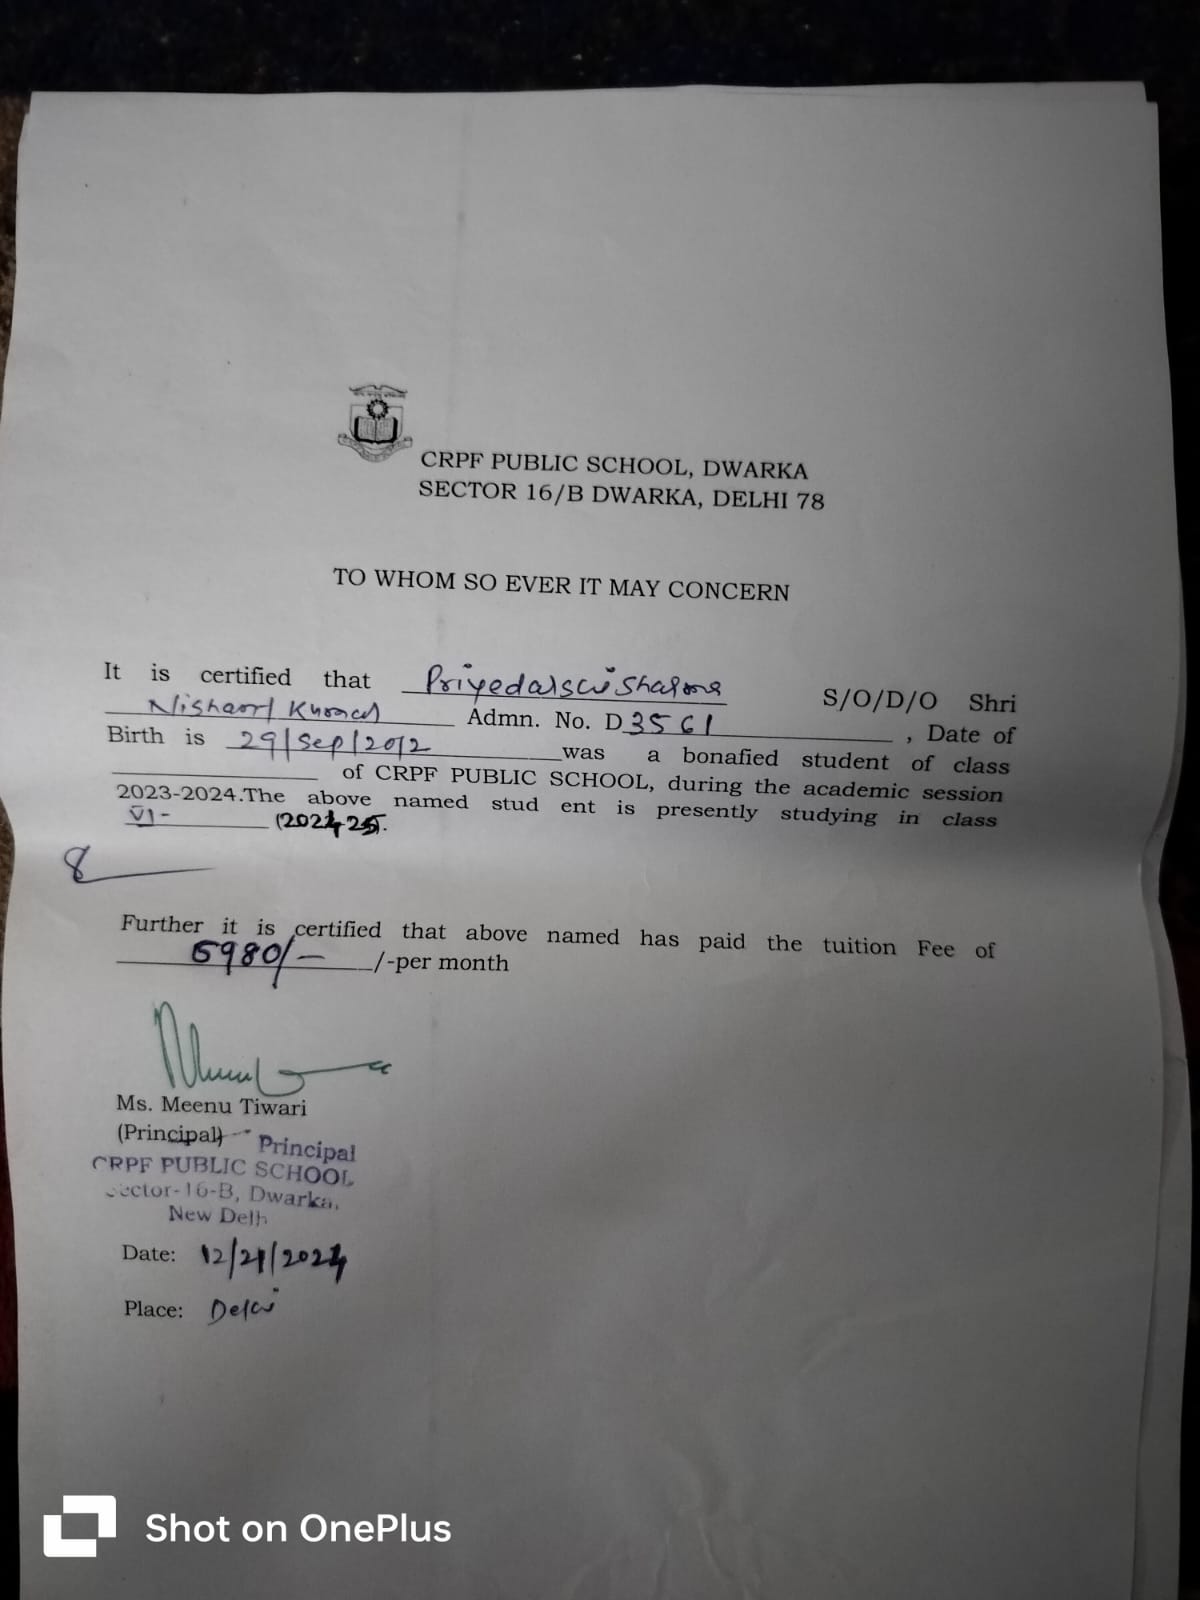 CRPF PUBLIC SCHOOL, DWARKA
SECTOR 16/B DWARKA, DELHI 78
TO WHOM SO EVER IT MAY CONCERN
It is certified that Priyedarshi Sharma S/O/D/O Shri
Nishant Kumar Admn. No. D3561 , Date of
Birth is 29/Sep/2012 was a bonafied student of class
of CRPF PUBLIC SCHOOL, during the academic session
2023-2024.The above named stud ent is presently studying in class
VI- (2024-25).
8
Further it is certified that above named has paid the tuition Fee of
5980/- /-per month
Ms. Meenu Tiwari
(Principal) Principal
CRPF PUBLIC SCHOOL
Sector-16-B, Dwarka,
New Delh
Date: 12/21/2024
Place: Delhi
Shot on OnePlus